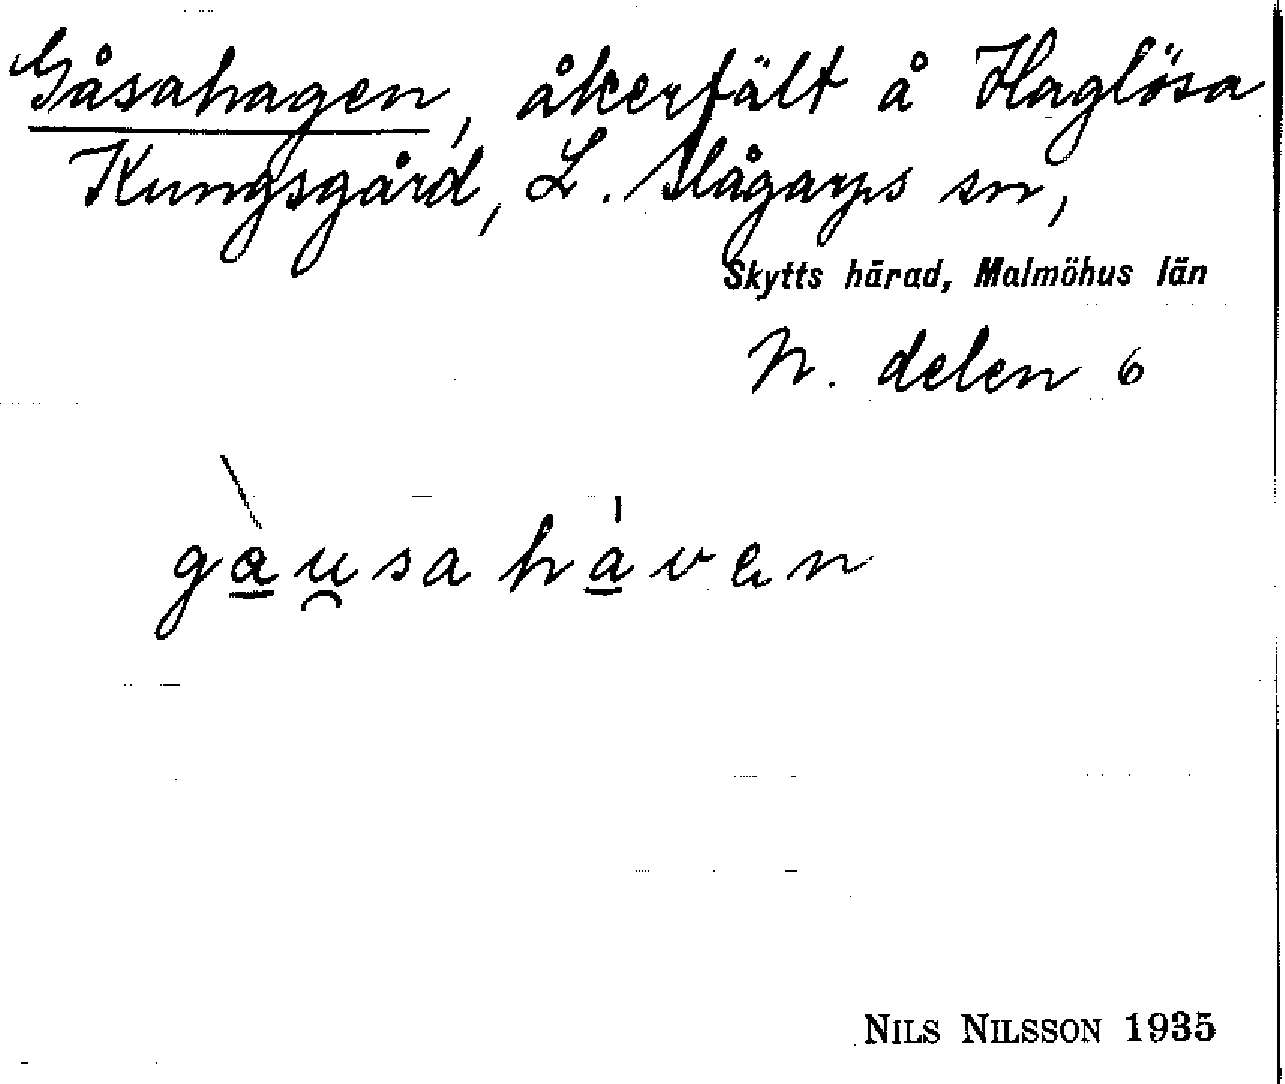 Gåsahagen, åkerfält å Haglösa
Kungsgård, L. Slågarps sn,
Skytts härad, Malmöhus län
N. delen 6
gau̯sahavən
NILS NILSSON 1935